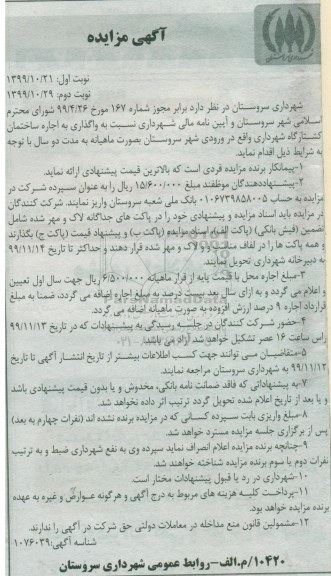 آگهی مزایده
نوبت اول: ۱۳۹۹/۱۰/۲۱
نوبت دوم: ۱۳۹۹/۱۰/۲۹
شهرداری سروستان در نظر دارد برابر مجوز شماره ۱۶۷ مورخ ۹۹/۴/۲۶ شورای محترم
اسلامی شهر سروستان و آیین نامه مالی شهرداری نسبت به واگذاری به اجاره ساختمان
کشتارگاه شهرداری واقع در ورودی شهر سروستان بصورت ماهیانه به مدت دو سال با توجه
به شرایط ذیل اقدام نماید.
۱-پیمانکار برنده مزایده فردی است که بالاترین قیمت پیشنهادی ارائه نماید.
۲-پیشنهاددهندگان موظفند مبلغ ۱۵/۶۰۰/۰۰۰ ریال را به عنوان سپرده شرکت در
مزایده به حساب ۰۱۰۶۷۳۹۸۵۸۰۰۵ بانک ملی شعبه سروستان واریز نمایند. شرکت کنندگان
در مزایده باید اسناد مزایده و پیشنهادی خود را در پاکت های جداگانه لاک و مهر شده شامل
تضمین (فیش بانکی) (پاکت الف) اسناد مزایده (پاکت ب) و پیشنهاد قیمت (پاکت ج) بگذارند
و همه پاکت ها را در لفاف مناسب و لاک و مهر شده قرار دهند و حداکثر تا تاریخ ۹۹/۱۱/۱۴
به دبیرخانه شهرداری تحویل نمایند.
۳-مبلغ اجاره محل با قیمت پایه از قرار ماهیانه ۶/۵۰۰/۰۰۰ ریال جهت سال اول تعیین
و اعلام می گردد و به ازای سال بعد بیست درصد به مبلغ اجاره اضافه می گردد، ضمنا به مبلغ
قرارداد اجاره ۹ درصد ارزش افزوده به صورت ماهیانه اضافه می گردد.
۴-حضور شرکت کنندگان در جلسه رسیدگی به پیشنهادات که در تاریخ ۹۹/۱۱/۱۳
راس ساعت ۱۶ عصر تشکیل خواهد شد آزاد می باشد.
۵-متقاضیان می توانند جهت کسب اطلاعات بیشتر از تاریخ انتشار آگهی تا تاریخ
۹۹/۱۱/۱۲ به شهرداری سروستان مراجعه نمایند.
۷-به پیشنهاداتی که فاقد ضمانت نامه بانکی، مخدوش و یا بدون قیمت پیشنهادی باشد
و یا بعد از تاریخ اعلام شده تحویل گردد ترتیب اثر داده نخواهد شد.
۸-مبلغ واریزی بابت سپرده کسانی که در مزایده برنده نشده اند (نفرات چهارم به بعد)
پس از برگزاری جلسه مزایده مسترد خواهد شد.
۹-چنانچه برنده مزایده اعلام انصراف نماید سپرده وی به نفع شهرداری ضبط و به ترتیب
نفرات دوم یا سوم برنده مزایده شناخته خواهند شد.
۱۰-شهرداری در رد یا قبول پیشنهادات مختار است.
۱۱-پرداخت کلیه هزینه های مربوط به درج آگهی و هرگونه عوارض و غیره به عهده
برنده مزایده خواهد بود.
۱۲-مشمولین قانون منع مداخله در معاملات دولتی حق شرکت در آگهی را ندارند.
شناسه آگهی:۱۰۷۶۰۳۹
۱۰۴۲۰/م.الف-روابط عمومی شهرداری سروستان